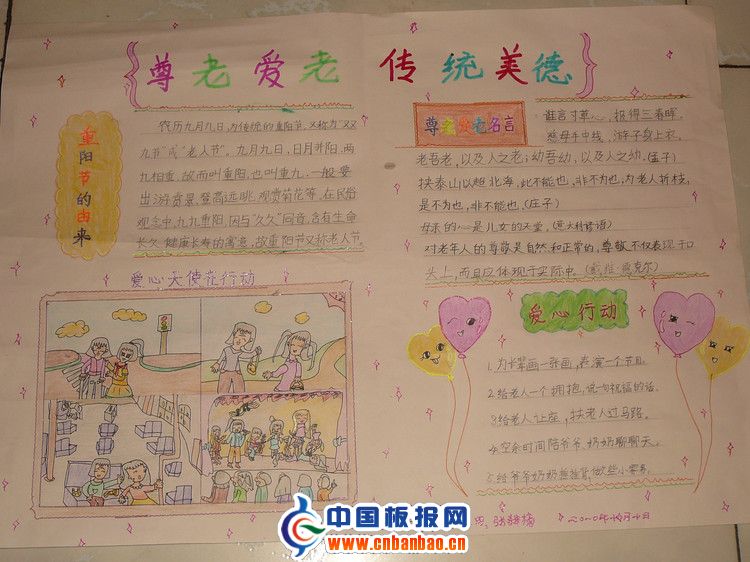 尊老爱老 传统美德
重阳节的由来
农历九月九日,为传统的重阳节,又称为“双
九节”或“老人节”。九月九日,日月并阳,两
九相重,故而叫重阳,也叫重九,一般要
出游赏景、登高远眺,观赏菊花等,在民俗
观念中,九九重阳,因与“久久”同音,含有生命
长久、健康长寿的寓意,故重阳节又称老人节。
爱心天使在行动
尊老爱老名言
谁言寸草心,报得三春晖。
慈母手中线,游子身上衣。
老吾老,以及人之老;幼吾幼,以及人之幼。(孟子)
挟泰山以超北海,此不能也,非不为也,为老人折枝,
是不为也,非不能也。(庄子)
母亲的心是儿女的天堂。(意大利谚语)
对老年人的尊敬是自然和正常的,尊敬不仅表现于口
头上,而且应体现于实际中。(戴维 克尔)
爱心行动
1.为长辈画一张画,表演一个节目。
2.给老人一个拥抱,说一句祝福的话。
3.给老人让座,扶老人过马路。
4.空余时间陪爷爷、奶奶聊聊天。
5.给爷爷奶奶捶捶背,做些小家务。
二〇一〇年 月 日
中国板报网
www.cnbanbao.cn